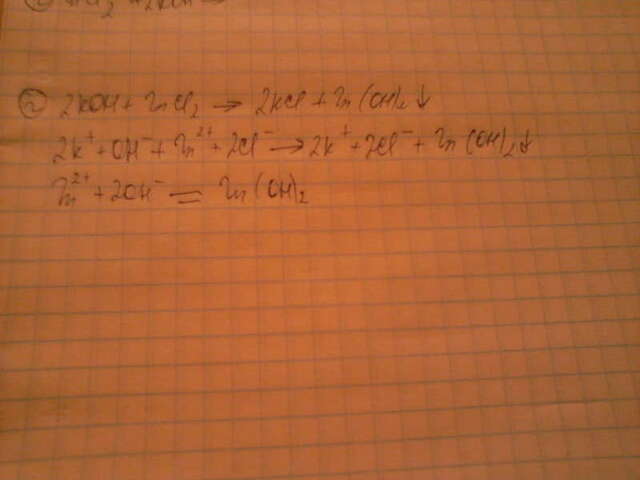 2) 2KOH + ZnCl₂ → 2KCl + Zn(OH)₂↓
2K⁺ + OH⁻ + Zn²⁺ + 2Cl⁻ → 2K⁺ + 2Cl⁻ + Zn(OH)₂↓
Zn²⁺ + 2OH⁻ = Zn(OH)₂